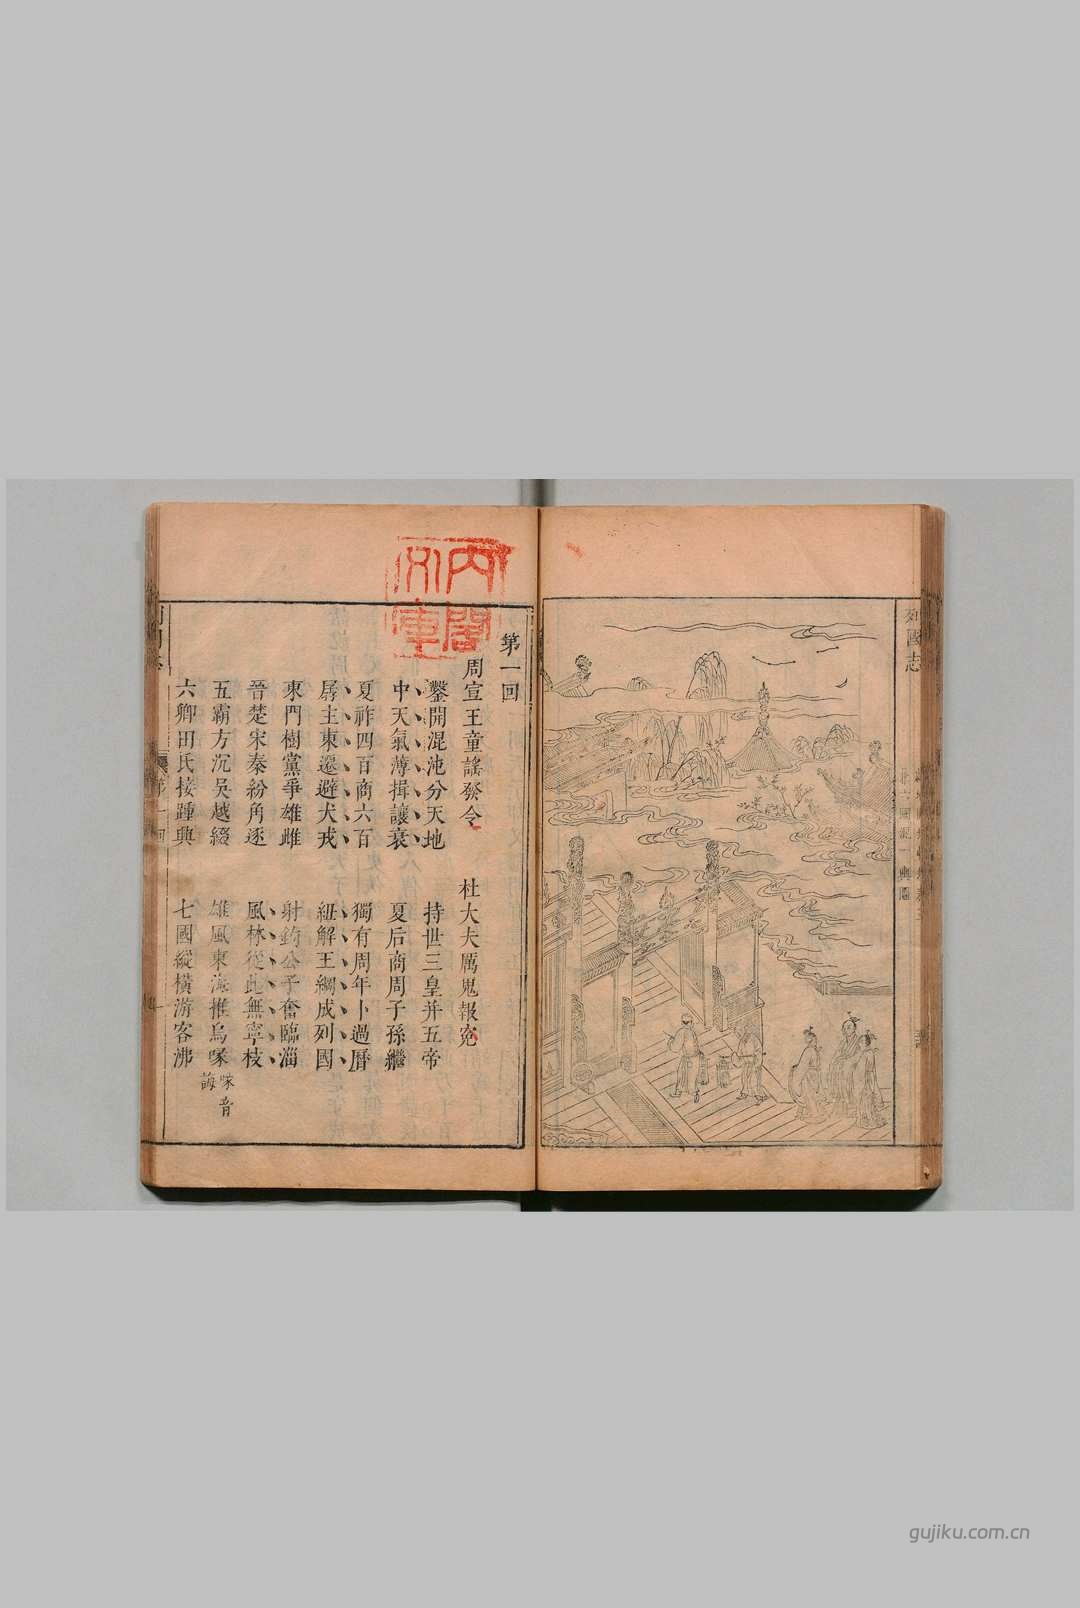 列國志
輿圖
內閣
文庫
第一回
周宣王童謠發令　杜大夫厲鬼報寃
鑿開混沌分天地　持世三皇并五帝
中天氣薄揖讓衰　夏后商周子孫繼
夏祚四百商六百　獨有周年卜過曆
孱主東遷避犬戎　紐解王綱成列國
東門樹黨爭雄雌　射鉤公子奮臨淄
晉楚宋秦紛角逐　風林從此無寧枝
五霸方沉吳越綴　雄風東海推烏喙
喙音
誨
六卿田氏接踵興　七國縱橫游客沸
gujiku.com.cn